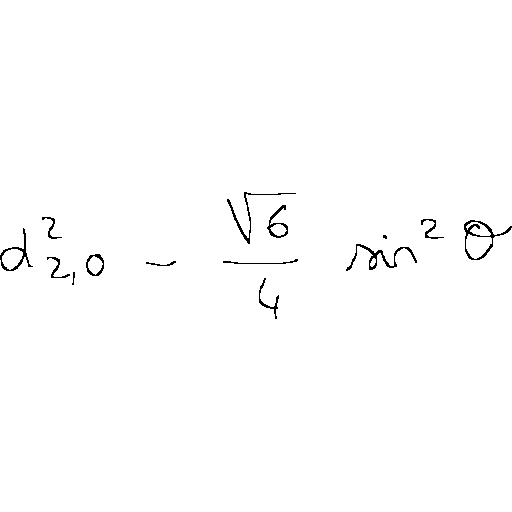 d^2_{2,0} - \frac{\sqrt{6}}{4} sin^2 θ